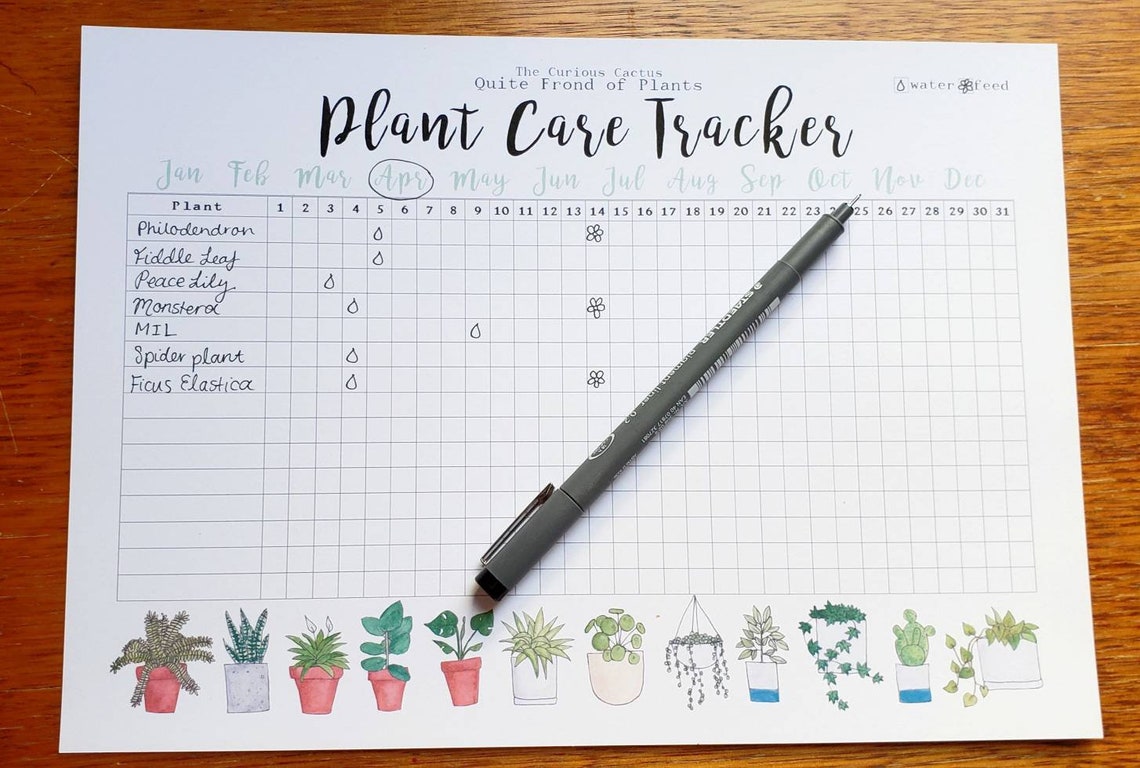 The Curious Cactus
Quite Frond of Plants
water feed
Plant Care Tracker
Jan Feb Mar Apr May Jun Jul Aug Sep Oct Nov Dec
Plant 1 2 3 4 5 6 7 8 9 10 11 12 13 14 15 16 17 18 19 20 21 22 23 25 26 27 28 29 30 31
Philodendron
Fiddle Leaf
Peace Lily
Monstera
MIL
Spider plant
Ficus Elastica
STAEDTLER pigment liner 0.2